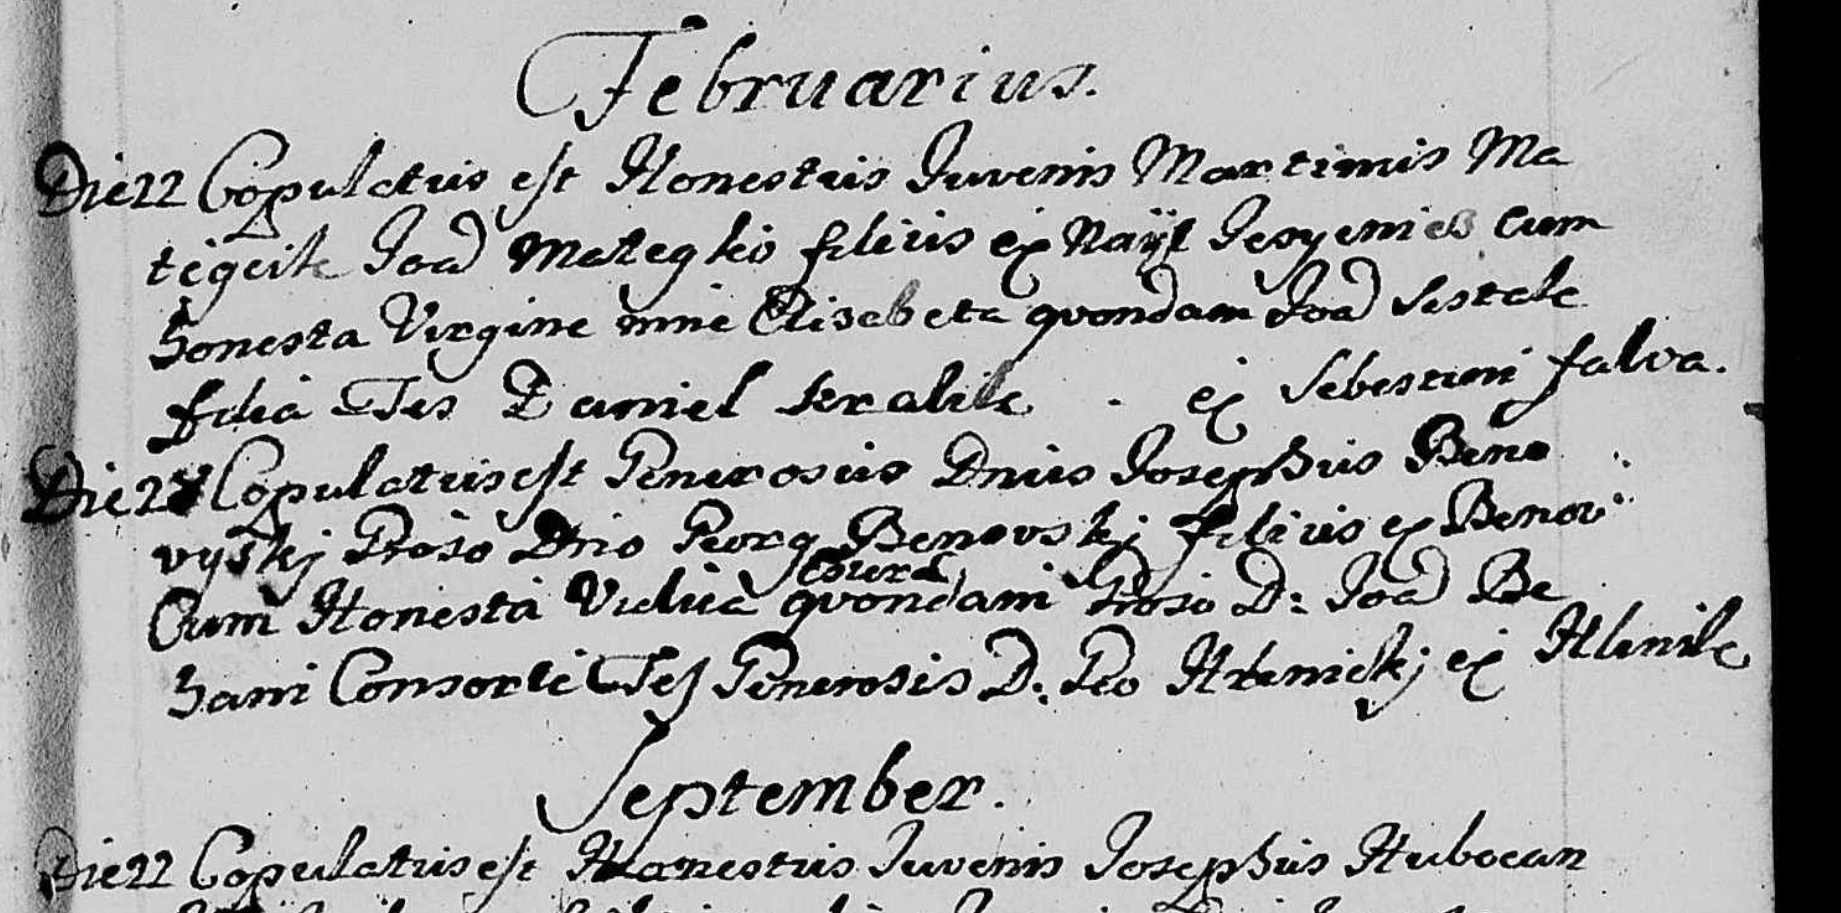 Februarius.
Die 22 Copulatus est Honestus Juvenis Martinus Ma
tegcik Joā Mategko filius ex Nayst Jesyenies cum
honesta Virgine nnie Elisabeta quondam Joā Sestak
filia Tes Daniel Kralik . ex Sebestieni falva.
Die 27 Copulatus est Generosus Dnus Josephus Beno
vyskj Groso Dno Georg Benovskj filius ex Benov
Cum Honesta Vidua quondam Groso D: Joā Be
hani Consorte Tes Generosis D: Geo Hlinickj ex Hlinik
September.
Die 22 Copulatus est Honestus Juvenis Josephus Hubocan